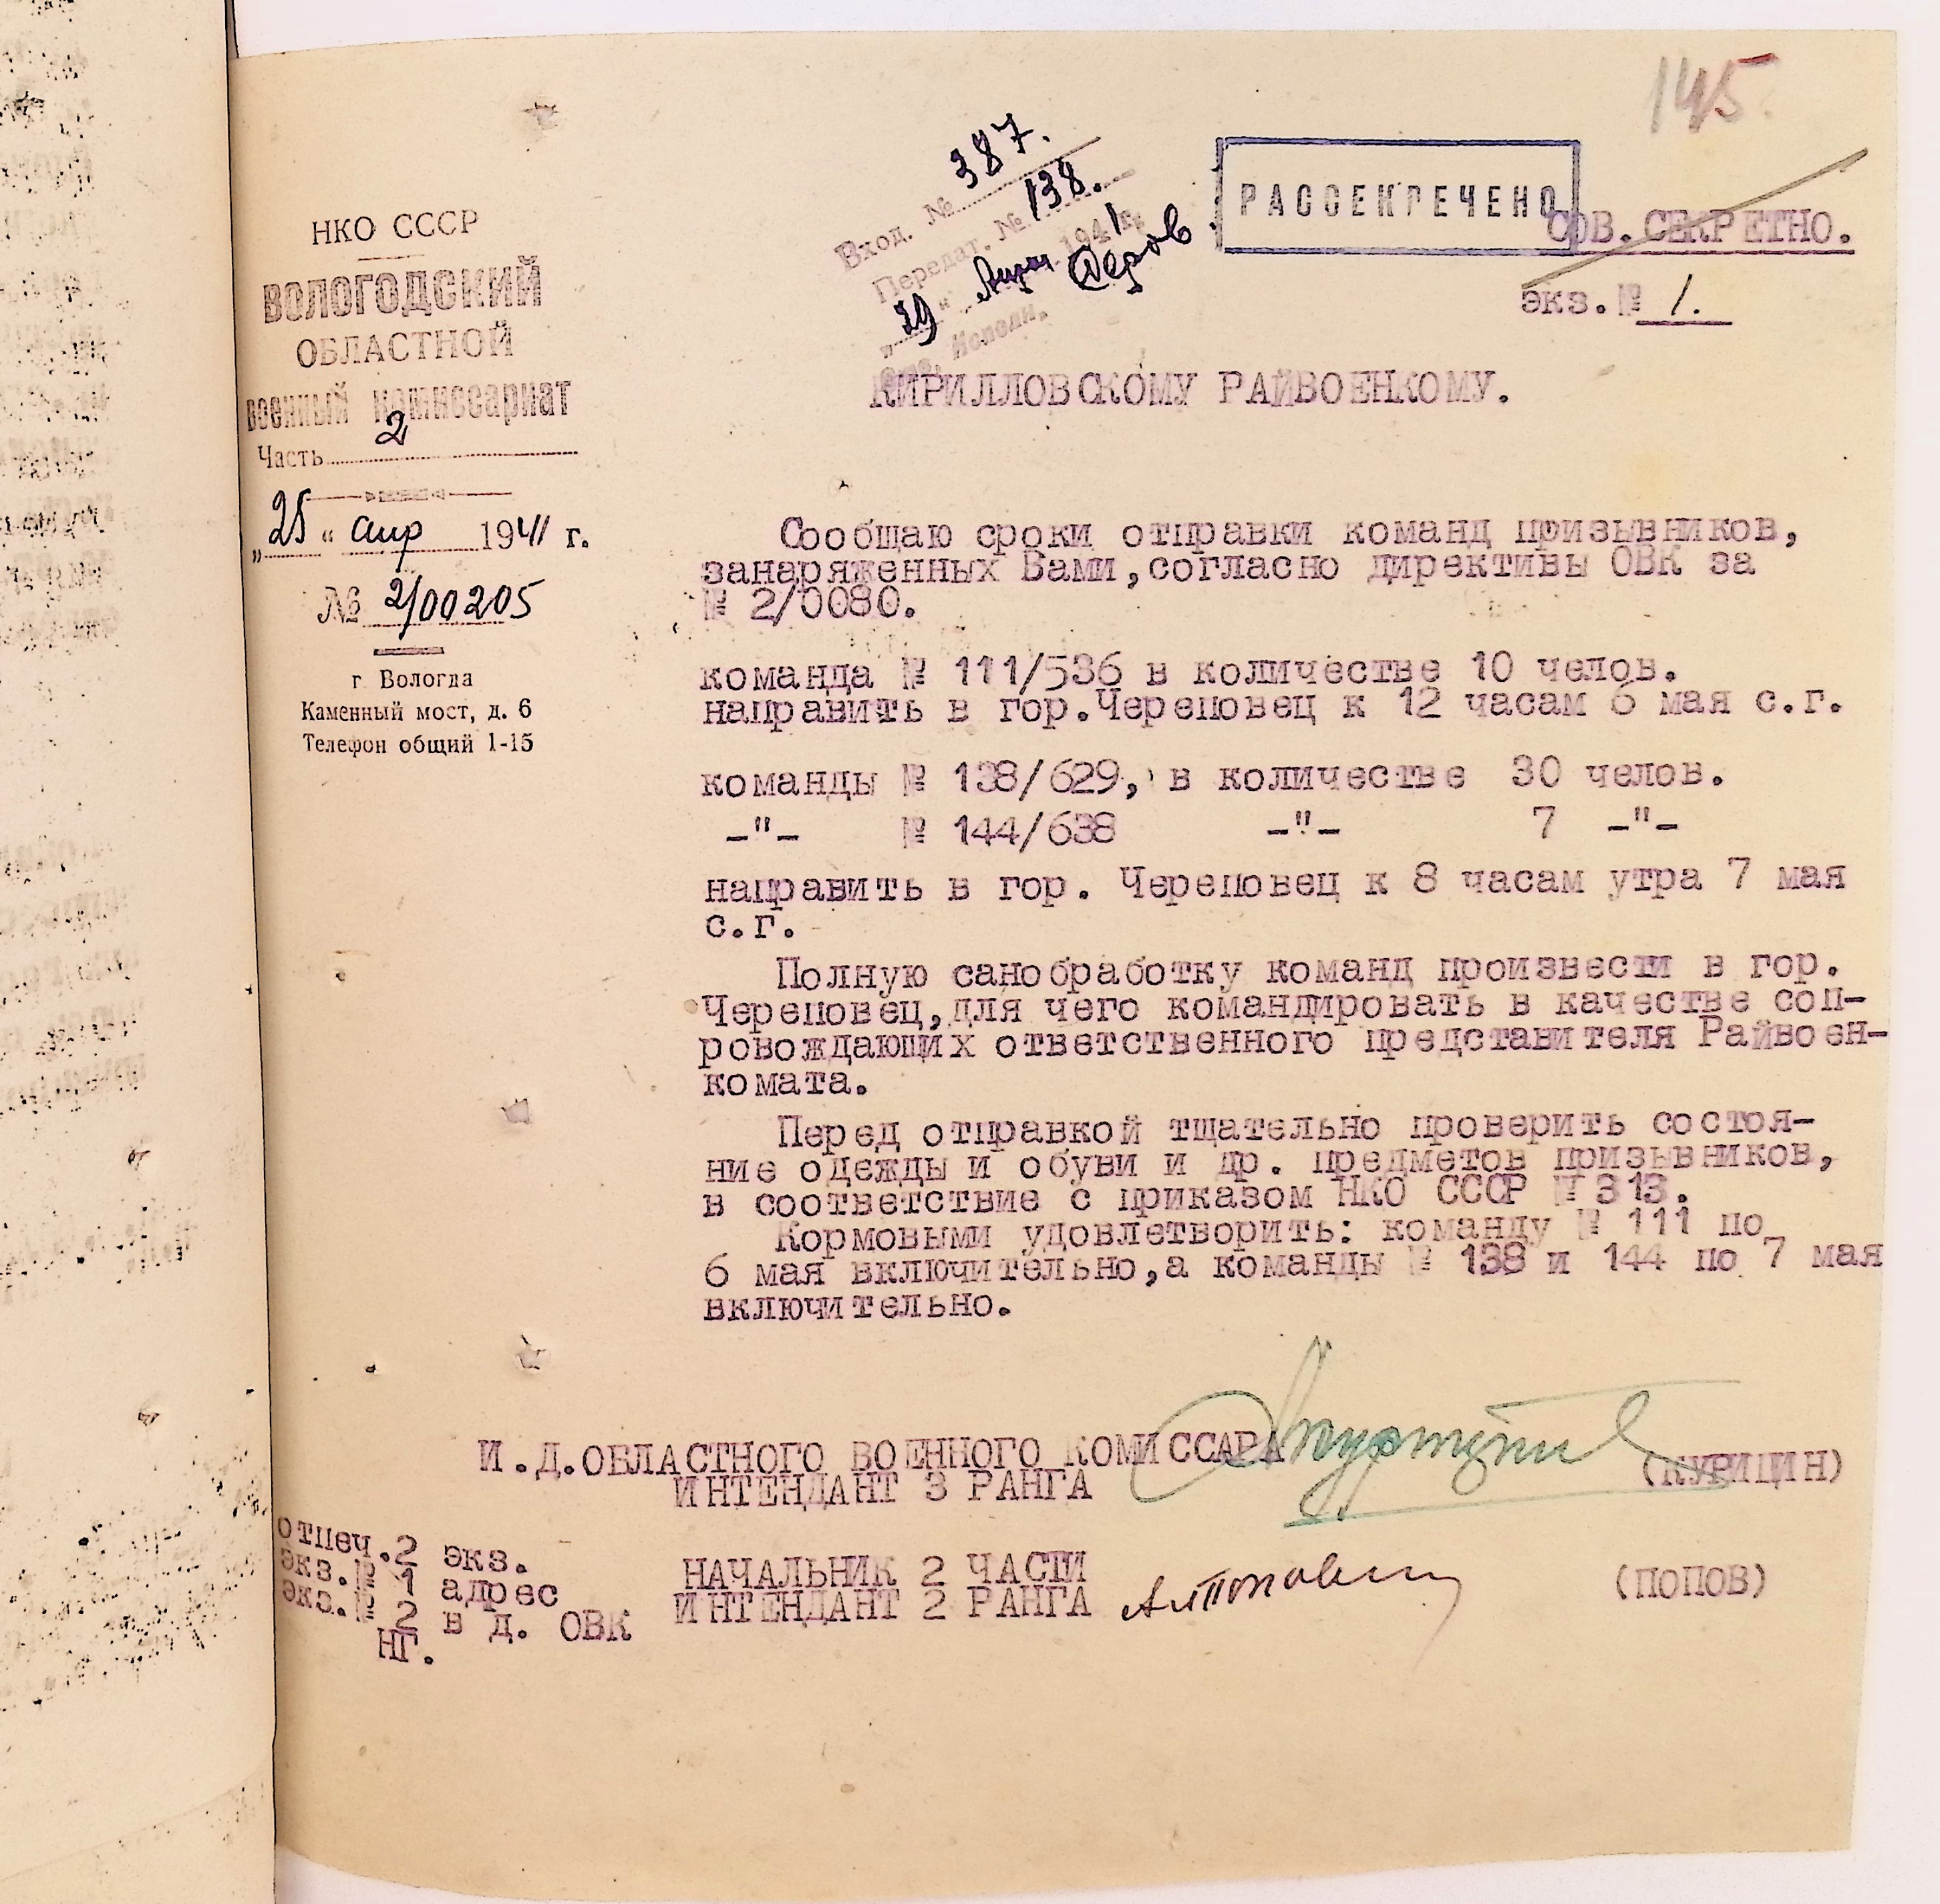 145
Вход. № 387.
Передат. № 138.
„29“ Апрел 1941 г.
РАССЕКРЕЧЕНО
СОВ. СЕКРЕТНО.
экз.№ 1.
НКО СССР
ВОЛОГОДСКИЙ
ОБЛАСТНОЙ
военный комиссариат
Часть 2
„25“ апр 1941 г.
№ 2/00205
г. Вологда
Каменный мост, д. 6
Телефон общий 1-15
КИРИЛЛОВСКОМУ РАЙВОЕНКОМУ.
Сообщаю сроки отправки команд призывников,
занаряженных Вами,согласно директивы ОВК за
№ 2/0080.
команда № 111/536 в количестве 10 челов.
направить в гор.Череповец к 12 часам 6 мая с.г.
команды № 138/629, в количестве 30 челов.
-"- № 144/638 -"- 7 -"-
направить в гор. Череповец к 8 часам утра 7 мая
с.г.
Полную санобработку команд произвести в гор.
Череповец,для чего командировать в качестве соп-
ровождающих ответственного представителя Райвоен-
комата.
Перед отправкой тщательно проверить состоя-
ние одежды и обуви и др. предметов призывников,
в соответствие с приказом НКО СССР № 313.
Кормовыми удовлетворить: команду № 111 по
6 мая включительно,а команды № 138 и 144 по 7 мая
включительно.
И.Д.ОБЛАСТНОГО ВОЕННОГО КОМИССАРА
ИНТЕНДАНТ 3 РАНГА (КУРИЦИН)
НАЧАЛЬНИК 2 ЧАСТИ
ИНТЕНДАНТ 2 РАНГА (ПОПОВ)
отпеч.2 экз.
экз.№ 1 адрес
экз.№ 2 в д. ОВК
НГ.